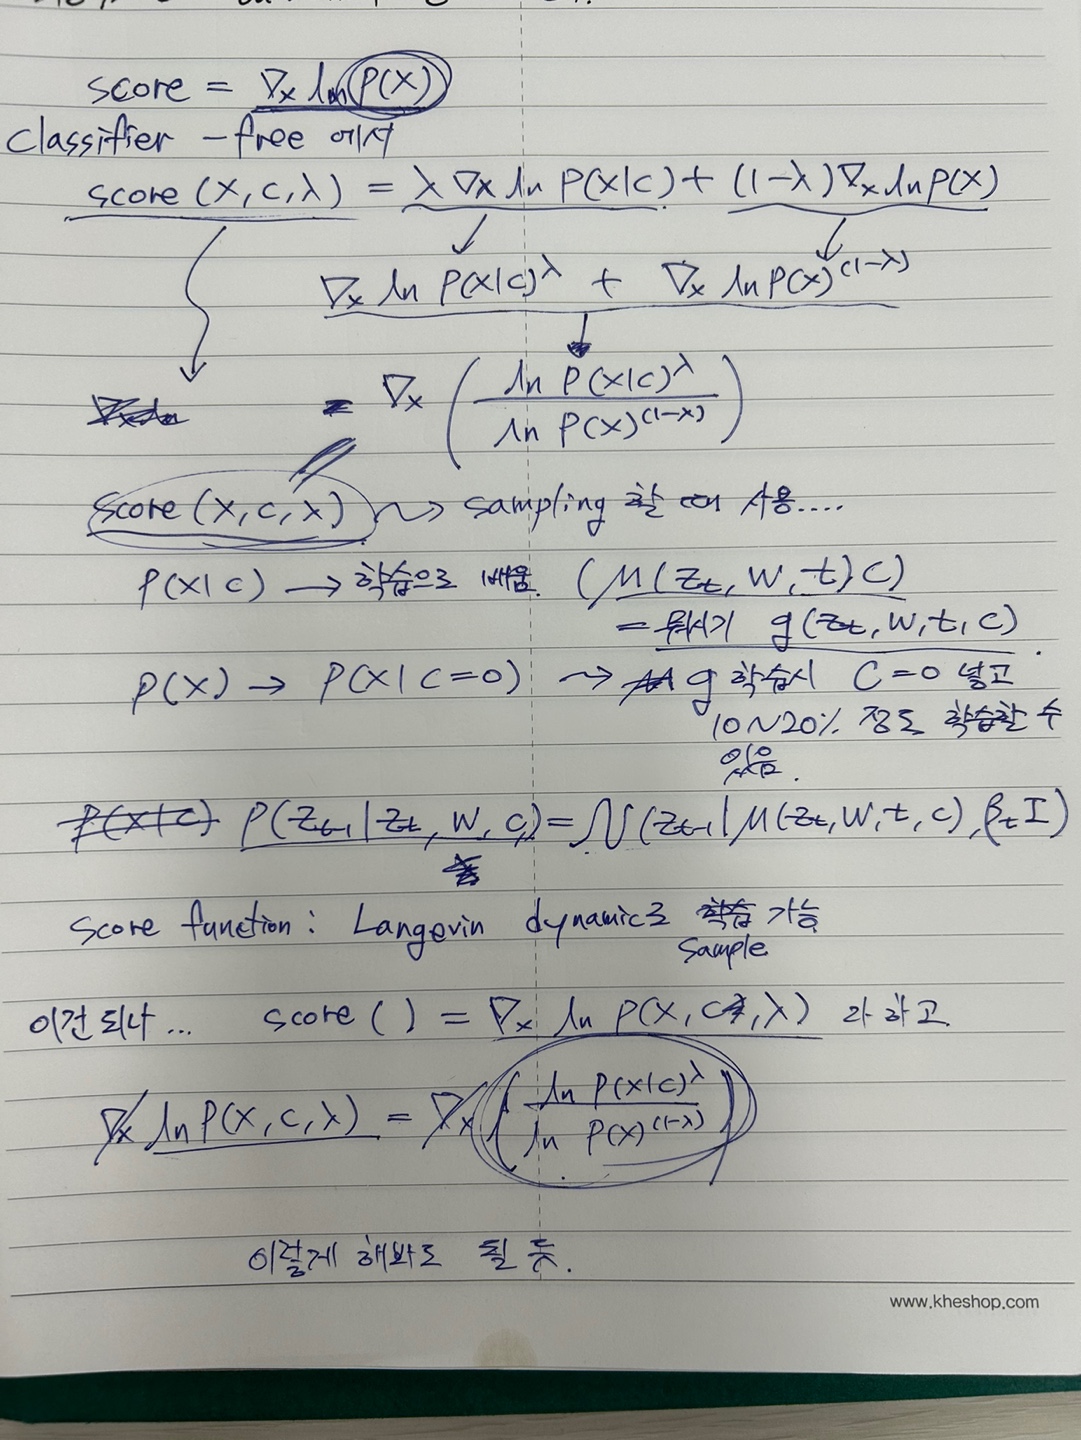 score = ∇x ln P(X)
Classifier - free 에서
score (X, C, λ) = λ ∇x ln P(X|C) + (1-λ) ∇x ln P(X)
∇x ln P(X|C)^λ + ∇x ln P(X)^(1-λ)
= ∇x ( ln P(X|C)^λ / ln P(X)^(1-λ) )
score (X, C, λ) ~> sampling 할 때 사용....
P(X|C) → 학습으로 배움. (M(Zt, W, t, C)
= 뭐시기 g(Zt, W, t, C).
P(X) → P(X|C=0) ~> g 학습시 C=0 넣고
10~20% 정도 학습할 수
있음.
P(X|C) P(Zt-1|Zt, W, C) = N(Zt-1|M(Zt, W, t, C), βt I)
Score function: Langevin dynamic로 학습 가능
Sample
이건 되나... score ( ) = ∇x ln P(X, C, λ) 라 하고
∇x ln P(X, C, λ) = ∇x ( ln P(X|C)^λ / ln P(X)^(1-λ) )
이렇게 해봐도 될 듯.
www.kheshop.com